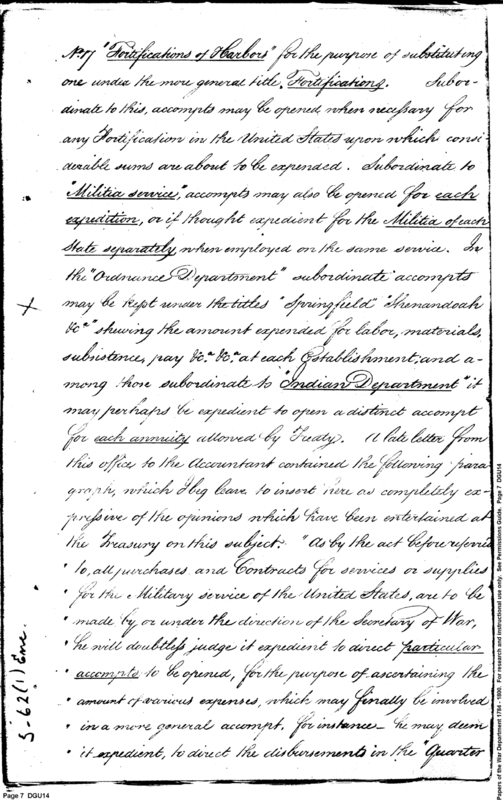 No 17 "Fortifications of Harbors" for the purpose of substituting
one under the more general title, Fortifications. Subor-
dinate to this, accompts may be opened when necessary for
any Fortification in the United States upon which consi-
derable sums are about to be expended. Subordinate to
"Militia service", accompts may also be opened for each
expedition, or if thought expedient for the Militia of each
State separately, when employed on the same service. In
the "Ordnance Department" subordinate accompts
may be kept under the titles "Springfield" "Shenandoah
&ca" shewing the amount expended for labor, materials,
subsistence, pay &ca &ca at each Establishment; and a-
mong those subordinate to "Indian Department" it
may perhaps be expedient to open a distinct accompt
for each annuity allowed by Treaty. A late letter from
this office to the Accountant contained the following para
graph, which I beg leave to insert here as completely ex-
pressive of the opinions which have been entertained at
the Treasury on this subject. "As by the act before referred
" to, all purchases and Contracts for services or supplies
" for the Military service of the United States, are to be
" made by or under the direction of the Secretary of War,
" he will doubtless judge it expedient to direct particular
" accompts to be opened, for the purpose of ascertaining the
" amount of various expenses, which may finally be involved
" in a more general accompt, for instance – he may deem
" it expedient, to direct the disbursements in the "Quarter
5-62(1) Enc.
Page 7 DGU14
Papers of the War Department 1784 - 1800. For research and instructional use only. See Permissions Guide. Page 7 DGU14